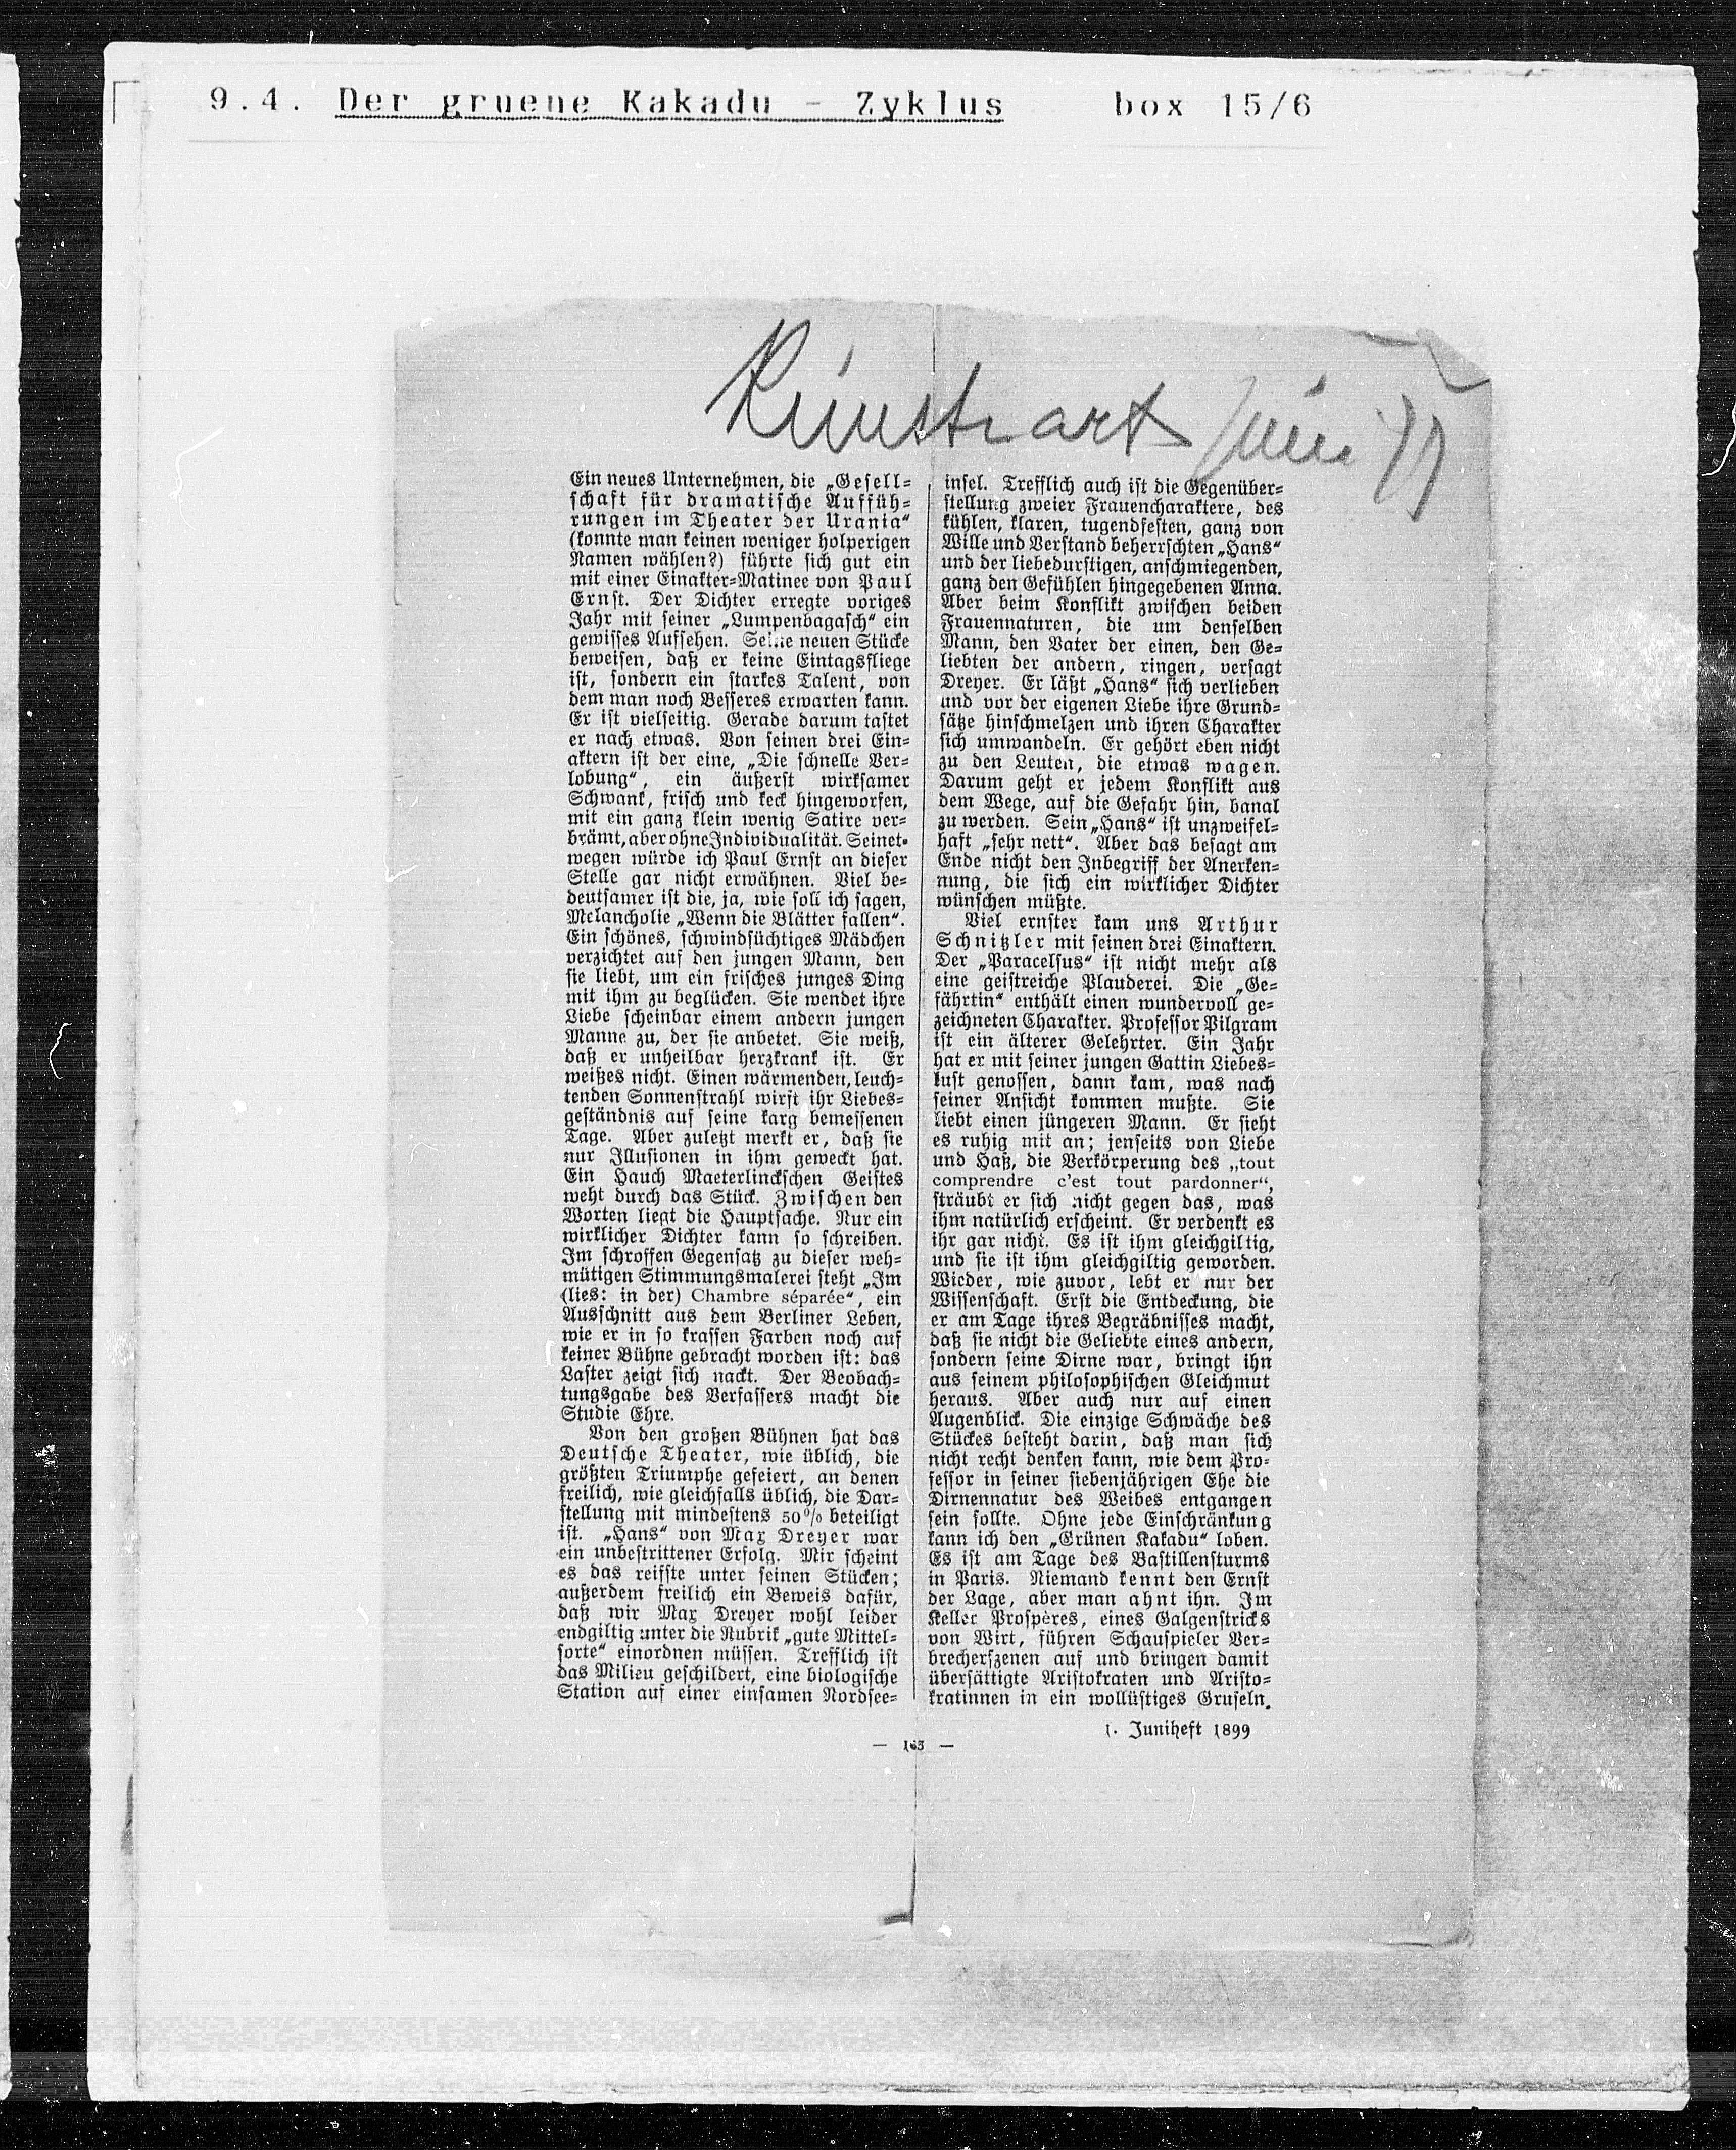 9.4. Der gruene Kakadu - Zyklus box 15/6
Kunstwart Juni 99
Ein neues Unternehmen, die „Gesell-
schaft für dramatische Auffüh-
rungen im Theater der Urania“
(konnte man keinen weniger holperigen
Namen wählen?) führte sich gut ein
mit einer Einakter-Matinee von Paul
Ernst. Der Dichter erregte voriges
Jahr mit seiner „Lumpenbagasch“ ein
gewisses Aufsehen. Seine neuen Stücke
beweisen, daß er keine Eintagsfliege
ist, sondern ein starkes Talent, von
dem man noch Besseres erwarten kann.
Er ist vielseitig. Gerade darum tastet
er nach etwas. Von seinen drei Ein-
aktern ist der eine, „Die schnelle Ver-
lobung“, ein äußerst wirksamer
Schwank, frisch und keck hingeworfen,
mit ein ganz klein wenig Satire ver-
brämt, aber ohne Individualität. Seinet-
wegen würde ich Paul Ernst an dieser
Stelle gar nicht erwähnen. Viel be-
deutsamer ist die, ja, wie soll ich sagen,
Melancholie „Wenn die Blätter fallen“.
Ein schönes, schwindsüchtiges Mädchen
verzichtet auf den jungen Mann, den
sie liebt, um ein frisches junges Ding
mit ihm zu beglücken. Sie wendet ihre
Liebe scheinbar einem andern jungen
Manne zu, der sie anbetet. Sie weiß,
daß er unheilbar herzkrank ist. Er
weißes nicht. Einen wärmenden, leuch-
tenden Sonnenstrahl wirft ihr Liebes-
geständnis auf seine karg bemessenen
Tage. Aber zuletzt merkt er, daß sie
nur Illusionen in ihm geweckt hat.
Ein Hauch Maeterlinckschen Geistes
weht durch das Stück. Zwischen den
Worten liegt die Hauptsache. Nur ein
wirklicher Dichter kann so schreiben.
Im schroffen Gegensatz zu dieser weh-
mütigen Stimmungsmalerei steht „Im
(lies: in der) Chambre séparée“, ein
Ausschnitt aus dem Berliner Leben,
wie er in so krassen Farben noch auf
keiner Bühne gebracht worden ist: das
Laster zeigt sich nackt. Der Beobach-
tungsgabe des Verfassers macht die
Studie Ehre.
Von den großen Bühnen hat das
Deutsche Theater, wie üblich, die
größten Triumphe gefeiert, an denen
freilich, wie gleichfalls üblich, die Dar-
stellung mit mindestens 50% beteiligt
ist. „Hans“ von Max Dreyer war
ein unbestrittener Erfolg. Mir scheint
es das reifste unter seinen Stücken;
außerdem freilich ein Beweis dafür,
daß wir Max Dreyer wohl leider
endgiltig unter die Rubrik „gute Mittel-
sorte“ einordnen müssen. Trefflich ist
das Milieu geschildert, eine biologische
Station auf einer einsamen Nordsee-
insel. Trefflich auch ist die Gegenüber-
stellung zweier Frauencharaktere, des
kühlen, klaren, tugendfesten, ganz von
Wille und Verstand beherrschten „Hans“
und der liebedurstigen, anschmiegenden,
ganz den Gefühlen hingegebenen Anna.
Aber beim Konflikt zwischen beiden
Frauennaturen, die um denselben
Mann, den Vater der einen, den Ge-
liebten der andern, ringen, versagt
Dreyer. Er läßt „Hans“ sich verlieben
und vor der eigenen Liebe ihre Grund-
sätze hinschmelzen und ihren Charakter
sich umwandeln. Er gehört eben nicht
zu den Leuten, die etwas wagen.
Darum geht er jedem Konflikt aus
dem Wege, auf die Gefahr hin, banal
zu werden. Sein „Hans“ ist unzweifel-
haft „sehr nett“. Aber das besagt am
Ende nicht den Inbegriff der Anerken-
nung, die sich ein wirklicher Dichter
wünschen müßte.
Viel ernster kam uns Arthur
Schnitzler mit seinen drei Einaktern.
Der „Paracelsus“ ist nicht mehr als
eine geistreiche Plauderei. Die „Ge-
fährtin“ enthält einen wundervoll ge-
zeichneten Charakter. Professor Pilgram
ist ein älterer Gelehrter. Ein Jahr
hat er mit seiner jungen Gattin Liebes-
lust genossen, dann kam, was nach
seiner Ansicht kommen mußte. Sie
liebt einen jüngeren Mann. Er sieht
es ruhig mit an; jenseits von Liebe
und Haß, die Verkörperung des „tout
comprendre c'est tout pardonner“,
sträubt er sich nicht gegen das, was
ihm natürlich erscheint. Er verdenkt es
ihr gar nicht. Es ist ihm gleichgiltig,
und sie ist ihm gleichgiltig geworden.
Wieder, wie zuvor, lebt er nur der
Wissenschaft. Erst die Entdeckung, die
er am Tage ihres Begräbnisses macht,
daß sie nicht die Geliebte eines andern,
sondern seine Dirne war, bringt ihn
aus seinem philosophischen Gleichmut
heraus. Aber auch nur auf einen
Augenblick. Die einzige Schwäche des
Stückes besteht darin, daß man sich
nicht recht denken kann, wie dem Pro-
fessor in seiner siebenjährigen Ehe die
Dirnennatur des Weibes entgangen
sein sollte. Ohne jede Einschränkung
kann ich den „Grünen Kakadu“ loben.
Es ist am Tage des Bastillensturms
in Paris. Niemand kennt den Ernst
der Lage, aber man ahnt ihn. Im
Keller Prospères, eines Galgenstricks
von Wirt, führen Schauspieler Ver-
brecherszenen auf und bringen damit
übersättigte Aristokraten und Aristo-
kratinnen in ein wollüstiges Gruseln.
1. Juniheft 1899
— 163 —